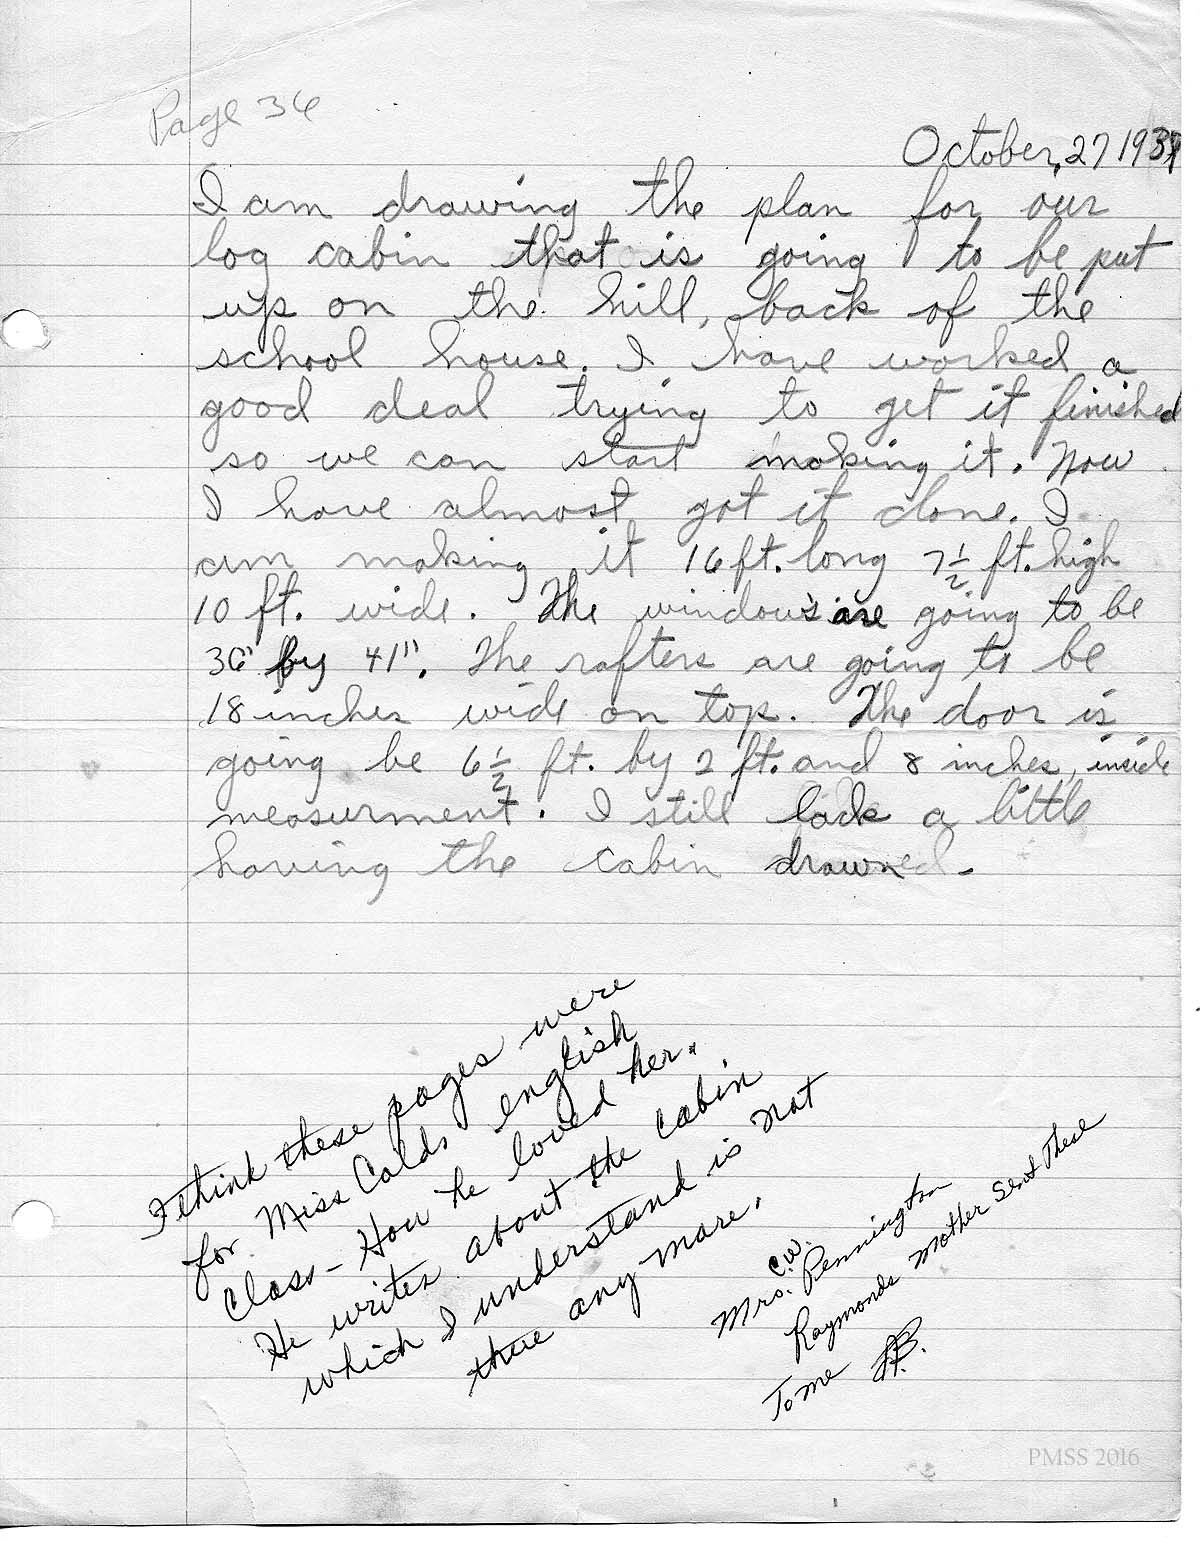 Page 36
October, 27 1937
I am drawing the plan for our
log cabin that is going to be put
up on the hill, back of the
school house. I have worked a
good deal trying to get it finished
so we can start making it. Now
I have almost got it done. I
am making it 16 ft. long 7 1/2 ft. high
10 ft. wide. The windows are going to be
36" by 41". The rafters are going to be
18 inches wide on top. The door is
going be 6 1/2 ft. by 2 ft. and 8 inches, inside
measurment. I still lack a little
having the cabin drawned.
I think these pages were
for Miss Colds english
Class - How he loved her.
He writes about the cabin
which I understand is not
there any more.
Mrs. C.W. Pennington
Raymonds Mother sent These
To me
PMSS 2016